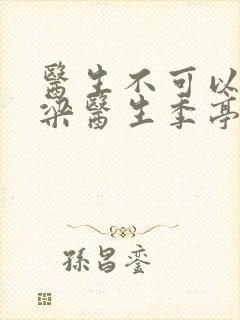 醫生不可以
梁醫生季亭
孫昌鑾